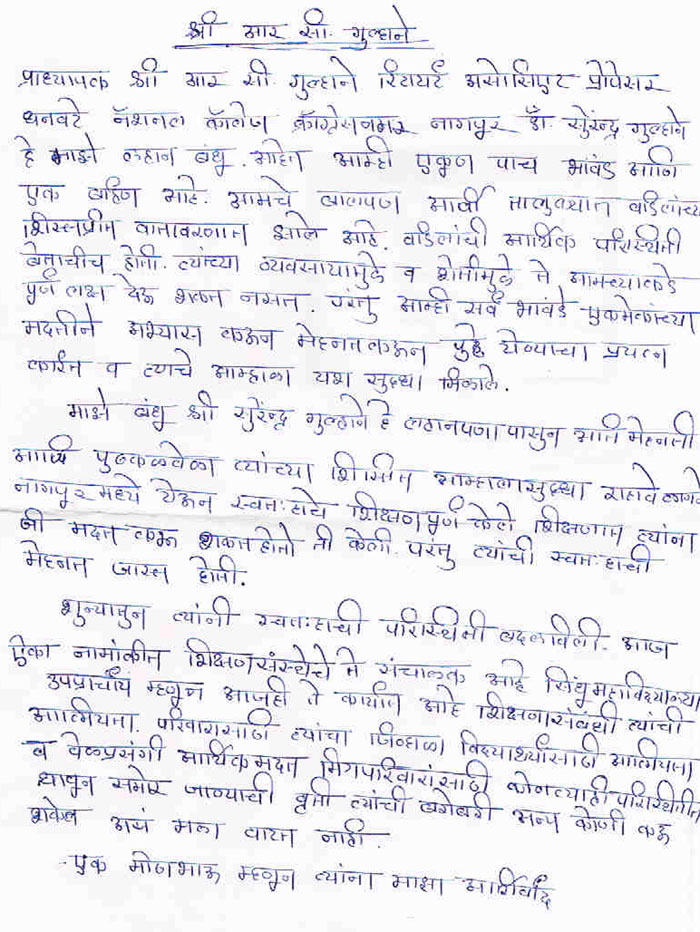 श्री आर सी. गुल्हाने
प्राध्यापक श्री आर सी. गुल्हाने रिटायर्ट असोसिएट प्रोफेसर
धनवटे नॅशनल कॉलेज काँग्रेसनगर नागपूर डॉ. सुरेन्द्र गुल्हाने
हे माझे लहान बंधु आहेत आम्ही एकूण पाच भांवंड आणि
एक बहिण आहे. आमचे बालपण आर्वी तालुक्यात वडिलांच्या
शिस्तप्रीत वातावरणात झाले आहे. वडिलांची आर्थिक परिस्थिती
बेताचीच होती. त्यांच्या व्यवसायामुळे व शेतीमुळे ते आमच्याकडे
पूर्ण लक्ष देऊ शकत नसत. परंतु आम्ही सर्व भावंडे एकमेकांच्या
मदतीने अभ्यास करून मेहनत करून पुढे येण्याचा प्रयत्न
करीत व त्याचे आम्हाला यश सुध्दा मिळाले.
माझे बंधु श्री सुरेंद्र गुल्हाने हे लहानपणा पासुन अति मेहनती
आणि पुष्कळवेळा त्यांच्या शिस्तीत आम्हालासुध्दा राहावे लागले
नागपूर मध्ये येऊन स्वतःहाचे शिक्षण पूर्ण केले शिक्षणात त्यांना
जी मदत करू शकत होतो ती केली. परंतु त्यांची स्वतःहाची
मेहनत जास्त होती.
शुन्यातुन त्यांनी स्वतःहाची परिस्थिती बदलविली. आज
ऐका नामांकीत शिक्षण संस्थेचे ते संचालक आहे सिंधु महाविद्यालया
उपप्राचार्य म्हणून आजही ते कार्यरत आहे शिक्षणासंबंधी त्यांची
आत्मियता. परिवारासाठी त्यांचा जिव्हाळा विद्यार्थ्यांसाठी आत्मियता
व वेळप्रसंगी आर्थिक मदत मित्रपरिवारांसाठी कोणत्याही परिस्थितीत
धावून समोर जाण्याची वृत्ती त्यांची बरोबरी अन्य कोणी करू
शकेल असं मला वाटत नाही.
एक मोठाभाऊ म्हणून त्यांना माझा आर्शिर्वाद